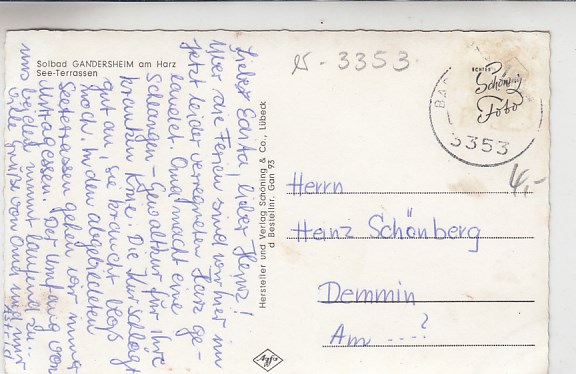 Solbad GANDERSHEIM am Harz
See-Terrassen
Liebe Edita! Lieber Heinz!
Über die Ferien sind wir hier im
jetzt leider verregneten Harz ge-
landet. Oma macht eine
Schlangen-Gewaltkur für ihre
kranken Knie. Die Kur schlägt
gut an, sie braucht bloß
noch. In den abgebildeten
Seeterrassen gehen wir immer
Mittagessen. Der Umfang von
uns beiden nimmt laufend zu..
Viele Grüße von Oma und
Hersteller und Verlag Schöning & Co., Lübeck
Bestellnr. Gan 93
Agfa
3353
ECHTES
Schöning
Foto
BA
3353
4,-
Herrn
Heinz Schönberg
Demmin
Am ....?